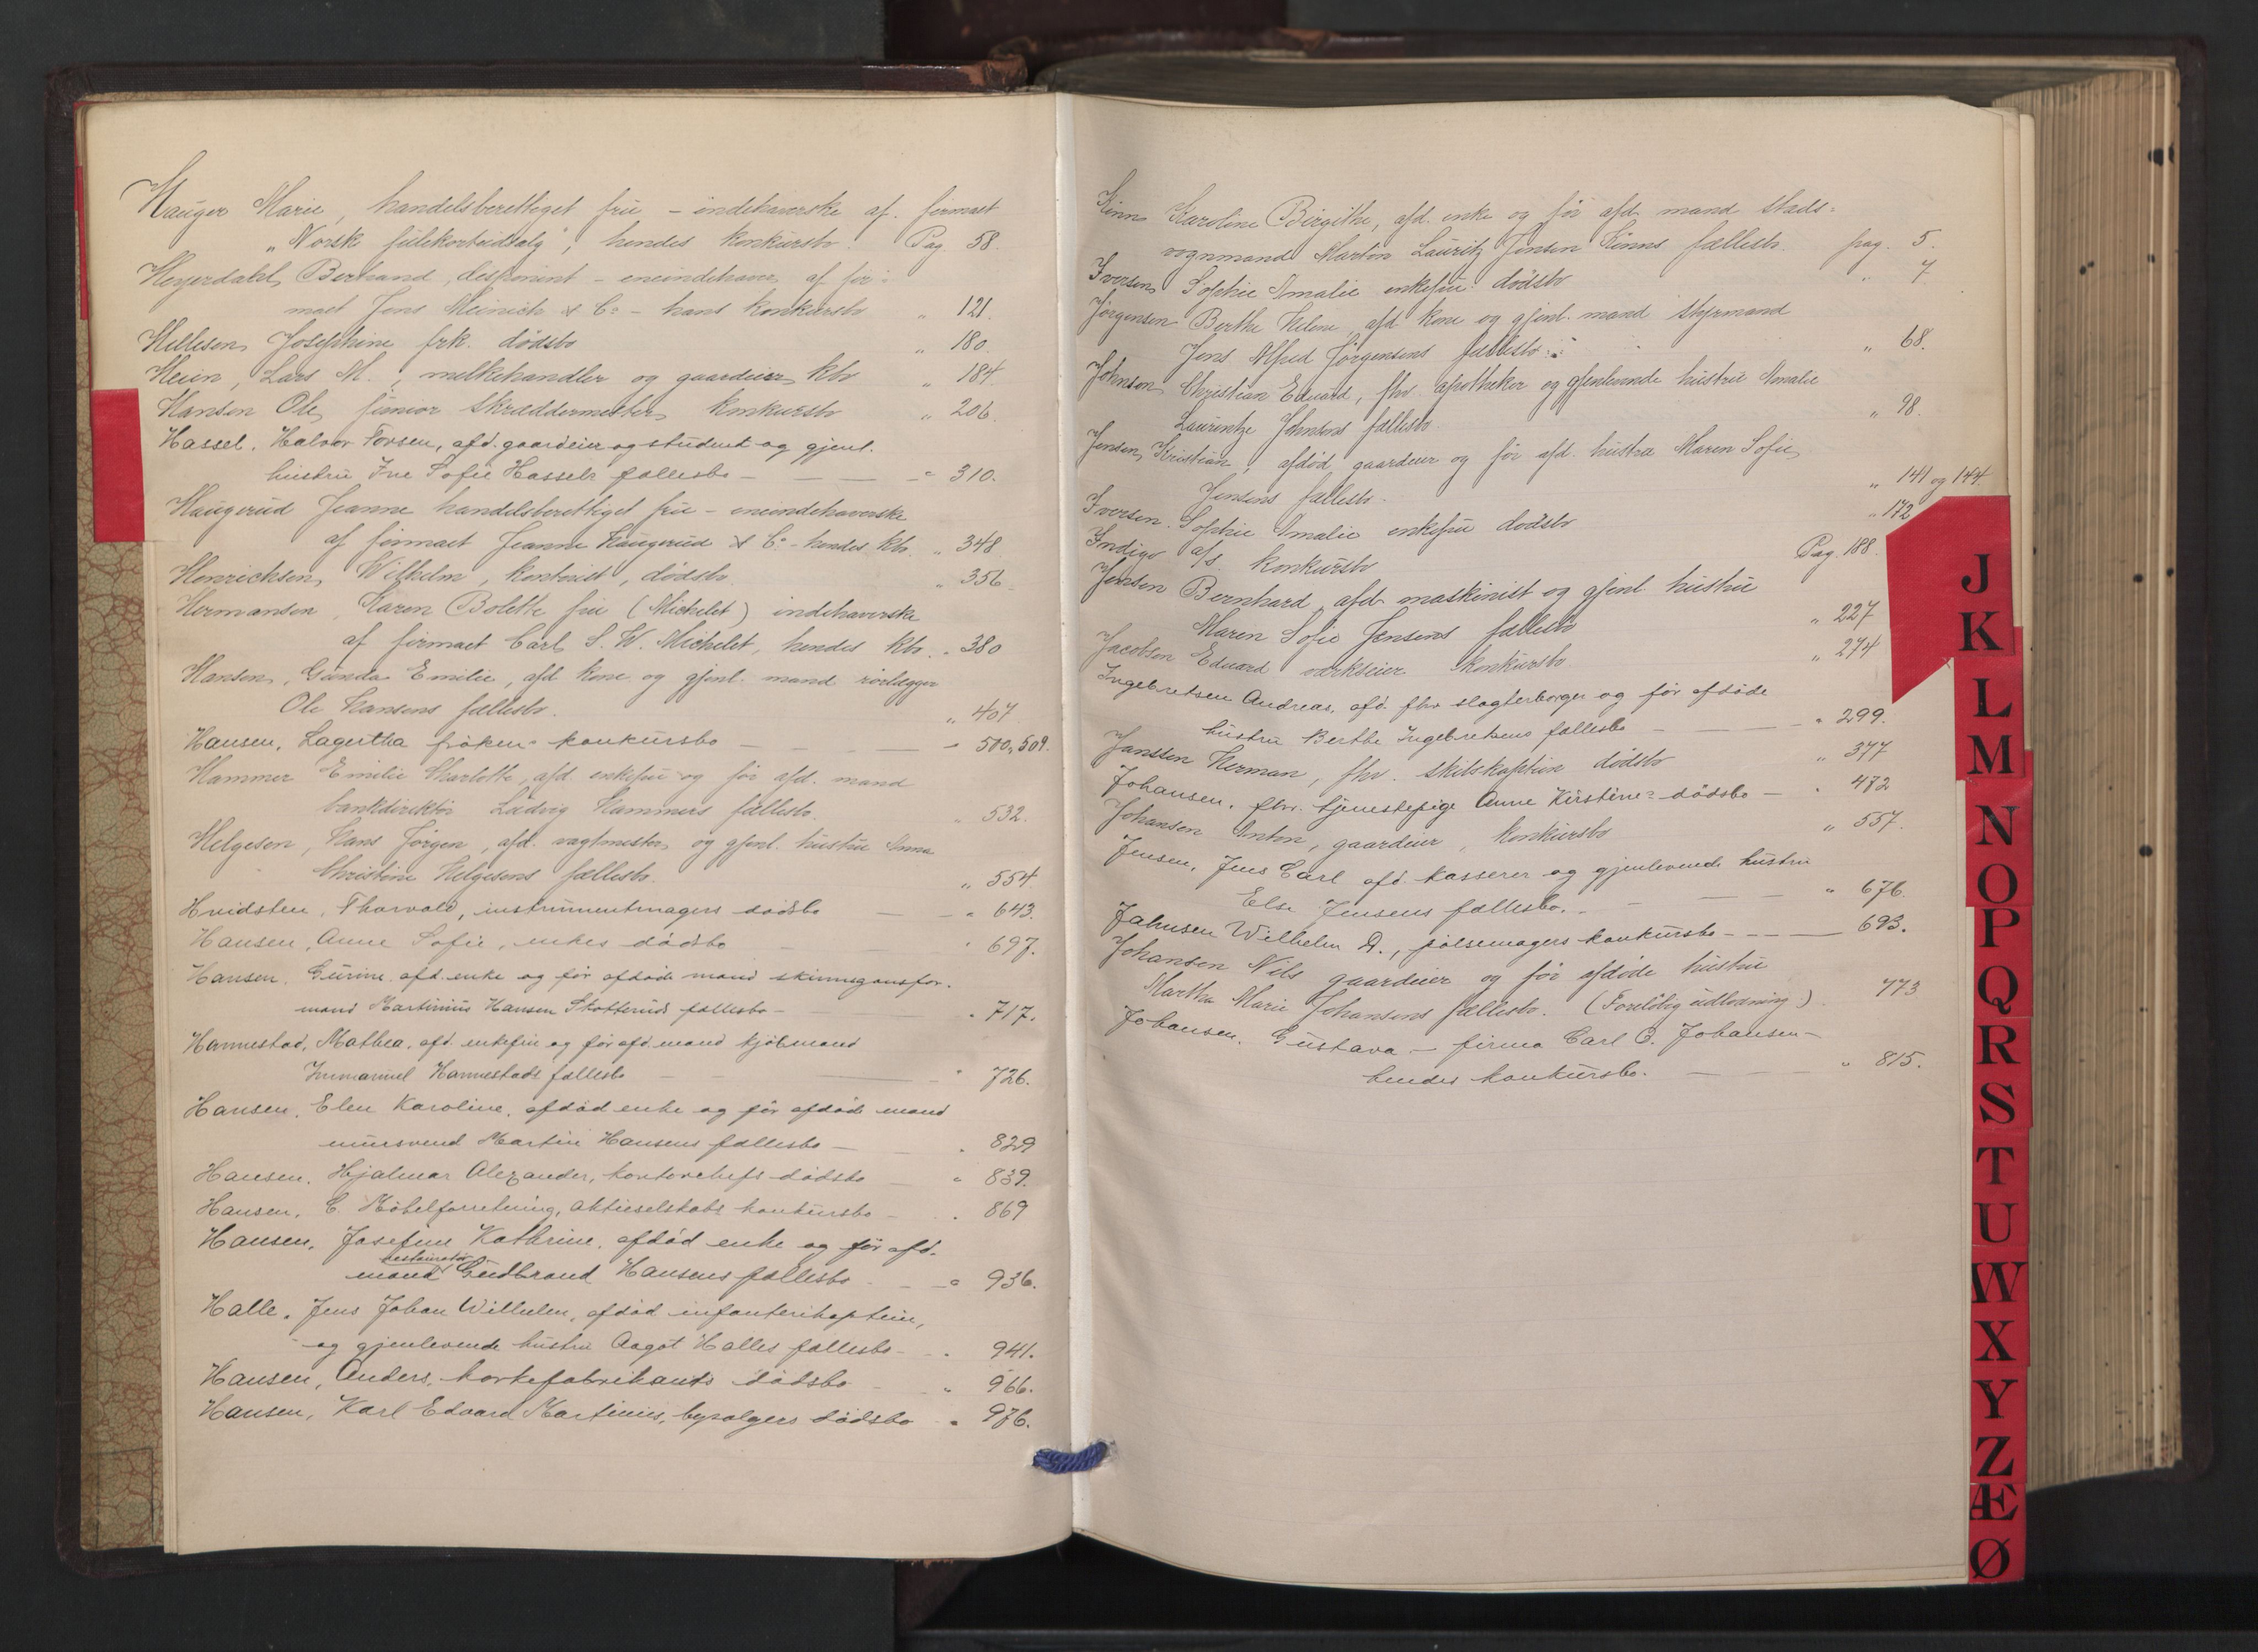 Hauger Marie, handelsberettiget frue – indehaverske af firmaet
„Norsk julekortudsalg", hendes konkursbo. Pag. 58.
Heyerdahl, Bernhard, disponent – eneindehaver af fir-
maet Jens Meinich & Co – hans konkursbo „ 121.
Hellesen, Josephine frk. dødsbo „ 180.
Heien, Lars M., melkehandler og gaardeier, kbo „ 184
Hansen Ole, junior skræddermester, konkursbo „ 206.
Hassel, Halvor Torsen, afd. gaardeier og student og gjenl.
hustru Ine Sofie Hassels fællesbo – „ 310.
Haugerud Jeanne handelsberettiget frue – eneindehaverske
af firmaet Jeanne Haugerud & Co – hendes kbo. „ 348
Henricksen, Wilhelm, kontorist, dødsbo. „ 356
Hermansen, Karen Bolette frue (Michelet) indehaverske
af firmaet Carl S. W. Michelet, hendes kbo. „ 380
Hansen, Gunda Emilie, afd. kone og gjenl. mand rørlægger
Ole Hansens fællesbo. „ 407
Hansen, Lagertha frøken – konkursbo – „ 500, 509.
Hammer Emilie Charlotte, afd. enkefrue og før afd. mand
bankdirektør Ludvig Hammers fællesbo. „ 532.
Helgesen, Hans Jørgen, afd. vagtmester og gjenl. hustru Anna
Christine Helgesens fællesbo. „ 554
Hvidsten, Thorvald, instrumentmagers dødsbo – „ 643.
Hansen, Anne Sofie, enkes dødsbo – „ 697.
Hansen, Gurine afd. enke og før afdøde mand skinnegansfor-
mand Martinius Hansen Skotteruds fællesbo – „ 717.
Hannestad, Mathea, afd. enkefrue og før afd. mand kjøbmand
Immanuel Hannestads fællesbo – „ 726.
Hansen, Elen Karoline, afdød enke og før afdøde mand
mursvend Martin Hansens fællesbo – „ 829
Hansen, Hjalmar Alexander, kontorchefs dødsbo – „ 839.
Hansen, C. Møbelforretning, aktieselskabs konkursbo – „ 869
Hansen, Josefine Kathrine, afdød enke og før afd.
mand restauratør Gudbrand Hansens fællesbo – „ 936.
Halle, Jens Johan Wilhelm, afdød infanterikaptein,
og gjenlevende hustru Aagot Halles fællesbo – „ 941.
Hansen, Anders, korkefabrikants dødsbo – „ 966.
Hansen, Karl Edvard Martinius, bysælgers dødsbo „ 976.
Jinns Karoline Birgithe, afd. enke og før afd. mand stads-
vognmand Martin Lauritz Jensen Jinns fællesbo. pag. 5.
Iversen, Sophie Amalie enkefrue dødsbo „ 7
Jørgensen Berthe Helene, afd. kone og gjenl. mand styrmand
Jens Alfred Jørgensens fællesbo „ 68.
Johnson, Christian Eduard, fhv. apotheker og gjenlevende hustru Amalie
Laurentze Johnsons fællesbo „ 98.
Jensen, Kristian, afdød gaardeier og før afd. hustru Maren Sofie
Jensens fællesbo. „ 141 og 144.
Iversen, Sophie Amalie enkefrue dødsbo „ 172
Indigo a/s. konkursbo Pag. 188.
Jensen Bernhard, afd. maskinist og gjenl. hustru
Maren Sofie Jensens fællesbo „ 227
Jacobsen Eduard værkseier konkursbo. „ 274
Ingebretsen Andreas, afd. fhv slagterborger og før afdøde
hustru Berthe Ingebretsens fællesbo – „ 299.
Janssen Herman, fhv. skibskaptein dødsbo „ 377
Johansen, fhv. tjenestepige Anne Kirstine – dødsbo – „ 472
Johansen Anton, gaardeier, konkursbo „ 557.
Jensen, Jens Carl afd. kasserer og gjenlevende hustru
Else Jensens fællesbo. – „ 676.
Jahnsen Wilhelm A., pølsemagers konkursbo – 693.
Johansen Nils gaardeier og før afdøde hustru
Martha Marie Johansens fællesbo. (Foreløbig udlodning) 773
Johansen, Gustava – firma Carl O. Johansen –
hendes konkursbo. – „ 815.
J
K
L
M
N
O
P
Q
R
S
T
U
W
X
Y
Z
Æ
Ø